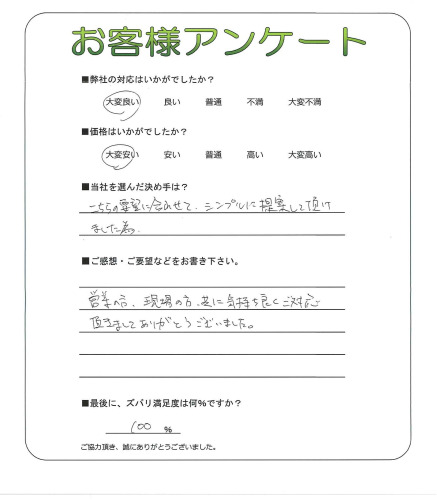 お客様アンケート
■弊社の対応はいかがでしたか？
大変良い 良い 普通 不満 大変不満
■価格はいかがでしたか？
大変安い 安い 普通 高い 大変高い
■当社を選んだ決め手は？
こちらの要望に合わせて、シンプルに提案して頂け
ました為。
■ご感想・ご要望などをお書き下さい。
営業の方、現場の方、共に気持ち良くご対応
頂きましてありがとうございました。
■最後に、ズバリ満足度は何％ですか？
100 ％
ご協力頂き、誠にありがとうございました。